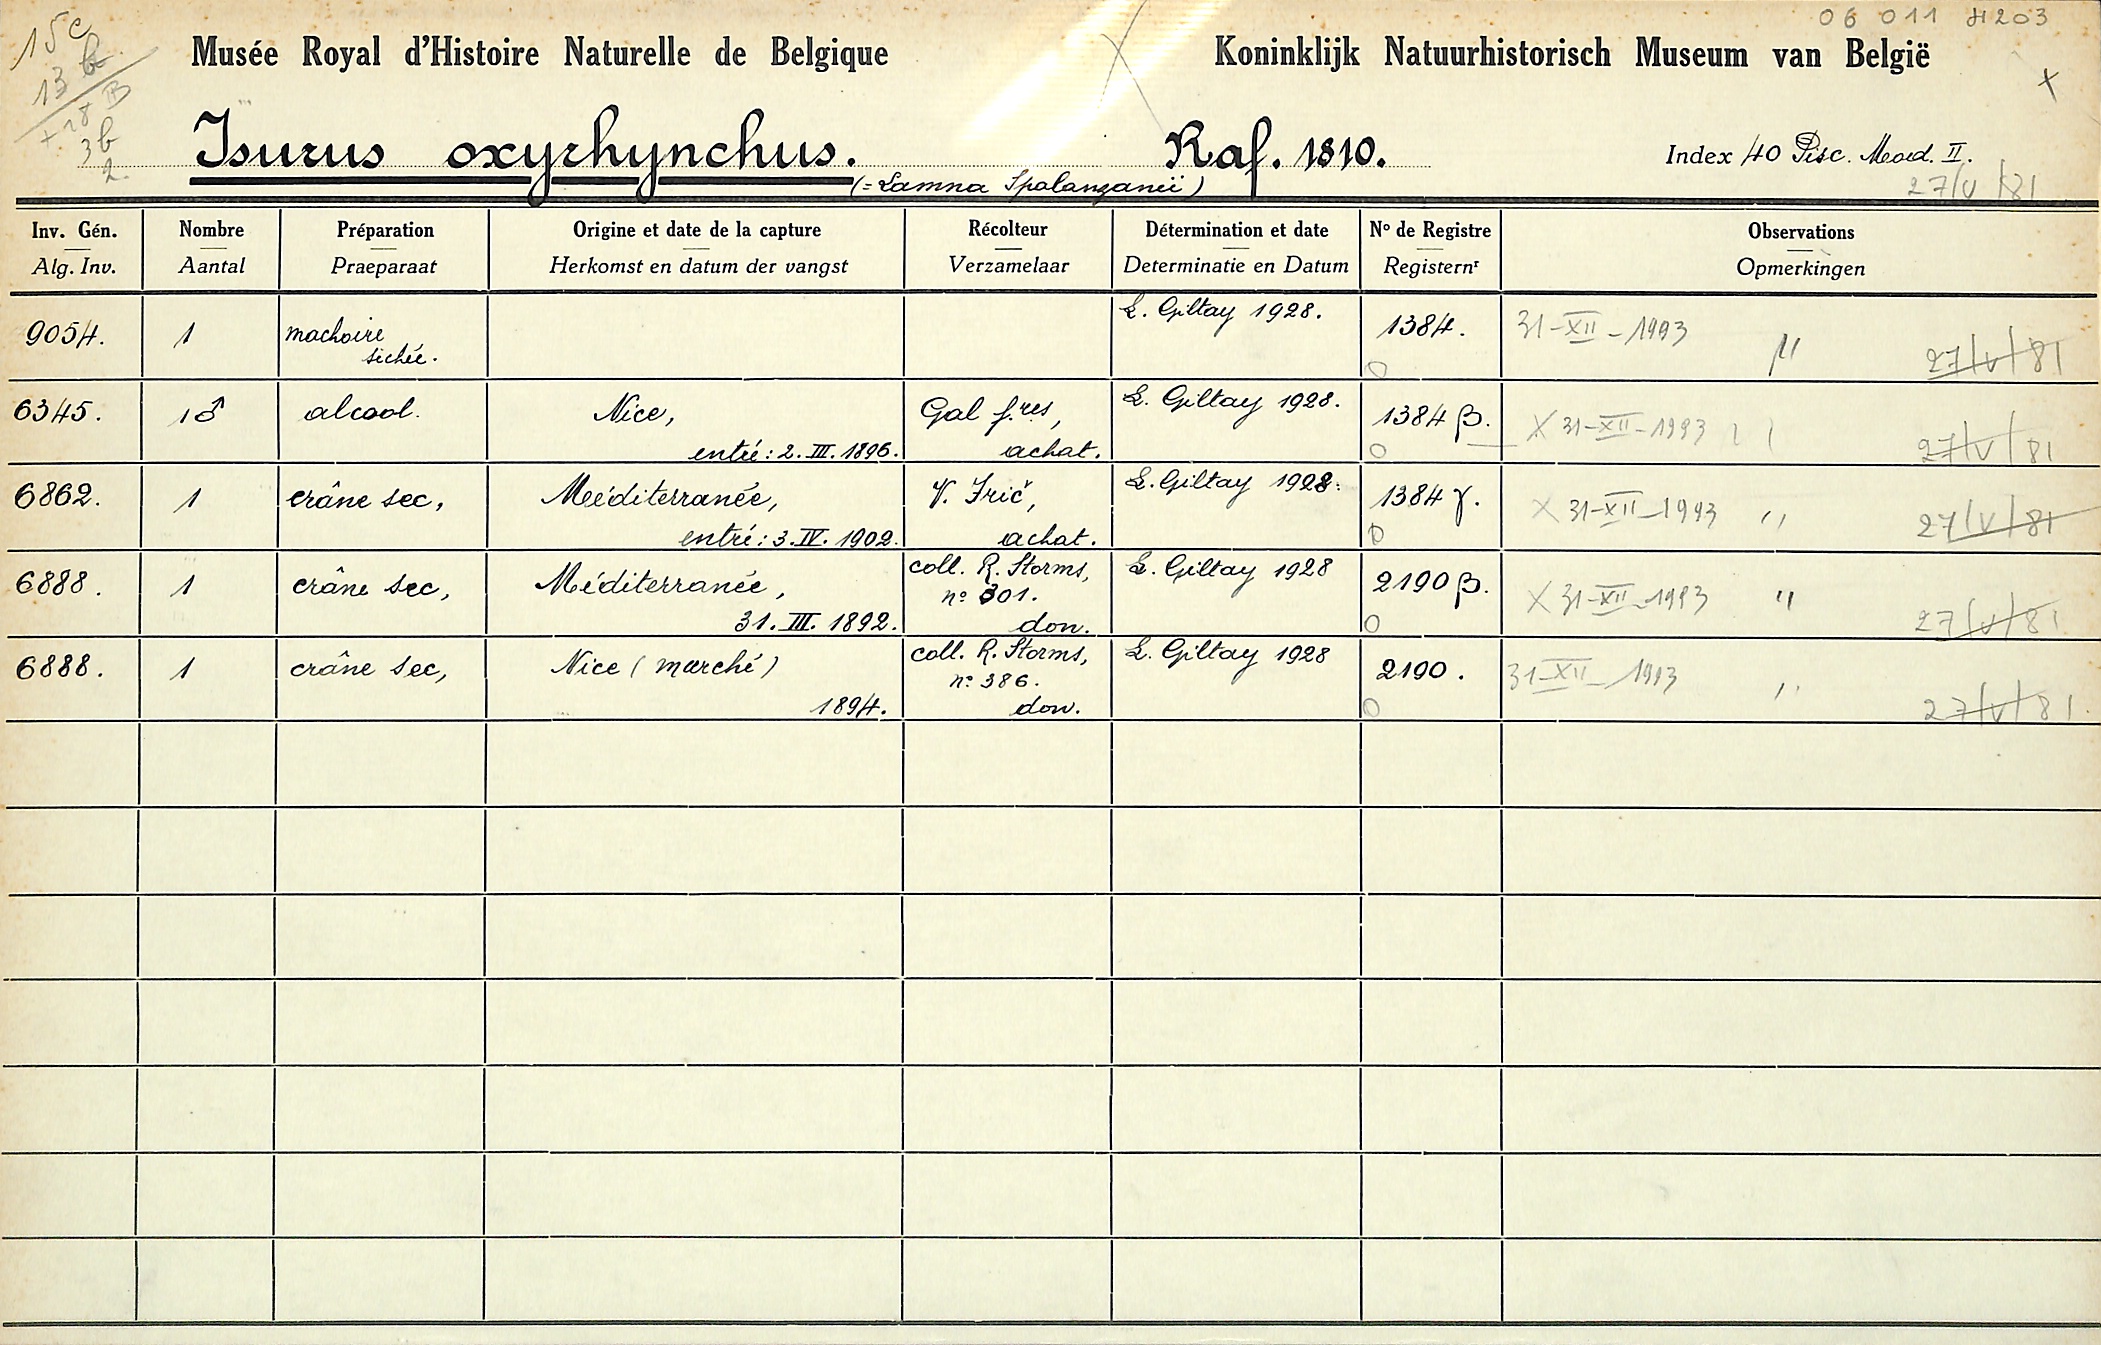 06 011 4203
15c
13 b
+ 28 B
3b
2
Musée Royal d'Histoire Naturelle de Belgique Koninklijk Natuurhistorisch Museum van België
Isurus oxyrhynchus. Raf. 1810. Index 40 Pisc. Maed. II.
(= Lamna Spalanzanii) 27/V/81
Inv. Gén. Nombre Préparation Origine et date de la capture Récolteur Détermination et date No de Registre Observations
Alg. Inv. Aantal Praeparaat Herkomst en datum der vangst Verzamelaar Determinatie en Datum Registernr Opmerkingen
9054. 1 machoire L. Giltay 1928. 1384. 31-XII-1993 "
sèchée. 27/V/81
6345. 1♂ alcool. Nice, Gal f.res, L. Giltay 1928. 1384 β. X 31-XII-1993 "
entré: 2. III. 1896. achat. 27/V/81
6862. 1 crâne sec, Méditerranée, V. Frič, L. Giltay 1928. 1384 γ. X 31-XII-1993 "
entré: 3. IV. 1902. achat. 27/V/81
6888. 1 crâne sec, Méditerranée, coll. R. Storms, L. Giltay 1928 2190 β. X 31-XII-1993 "
no 301.
31. III. 1892. don. 27/V/81
6888. 1 crâne sec, Nice (marché) coll. R. Storms, L. Giltay 1928 2190. 31-XII-1993 "
no 386.
1894. don. 27/V/81.